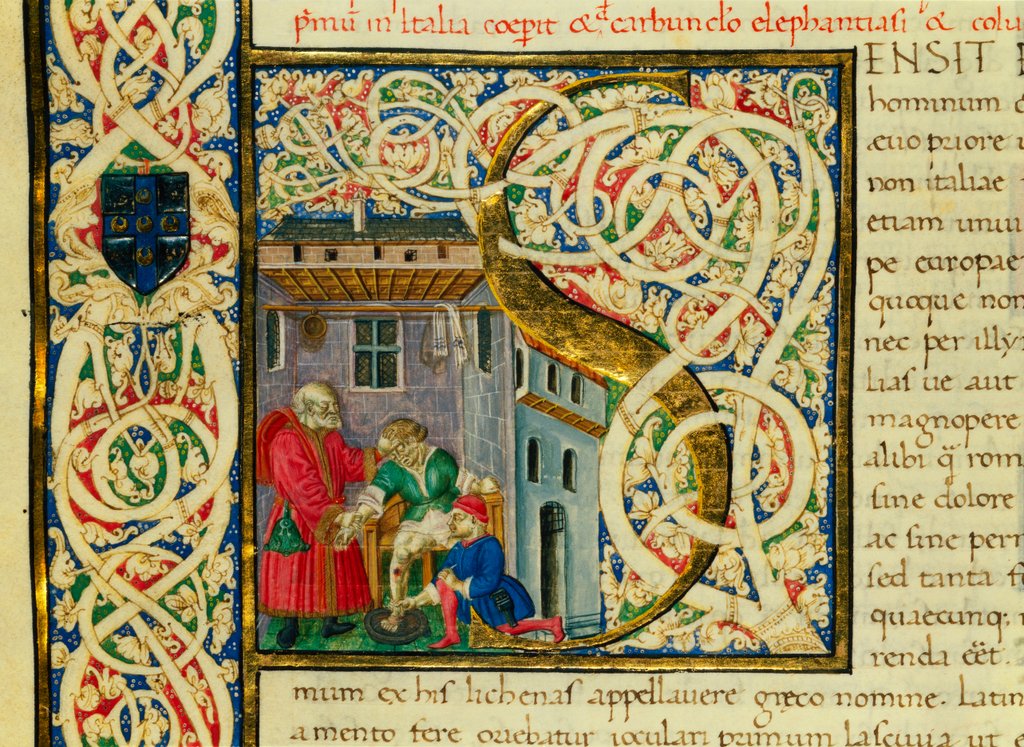 p̄mū in Italia coepit & carbunclo elephantiasi & colu
SENSIT
hominum
æuo priore
non italiae
etiam unıu
pe europae
quoque non
nec per illy
lias ue aut
magnopere
alibi q̄ rom
sine dolore
ac sine pern
sed tanta
quaecunq;
renda eēt.
mum ex his lichenas appellauere græco nomine. Latin
amento fere oriebatur ioculari primum lasciuia ut